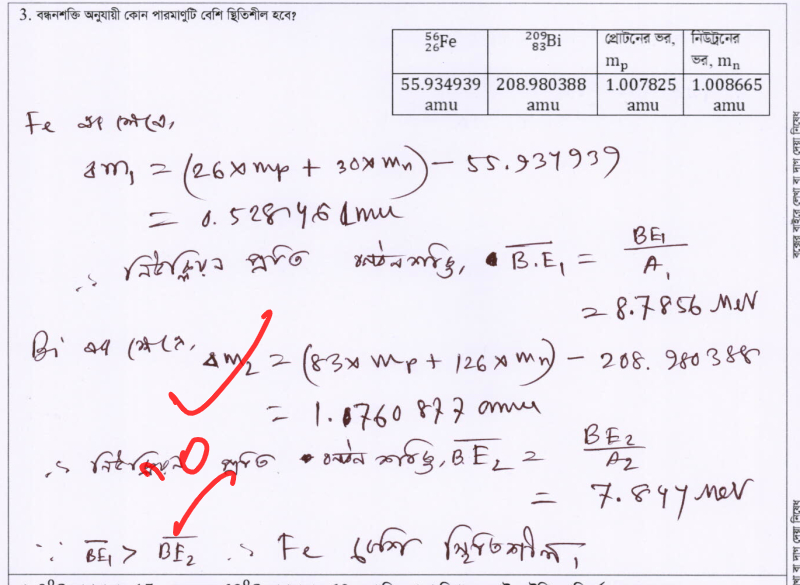 3. বন্ধনশক্তি অনুযায়ী কোন পারমাণুটি বেশি স্থিতিশীল হবে?
⁵⁶₂₆Fe ²⁰⁹₈₃Bi প্রোটনের ভর, mₚ নিউট্রনের ভর, mₙ
55.934939 amu 208.980388 amu 1.007825 amu 1.008665 amu
Fe এর ক্ষেত্রে,
Δm₁ = (26×mₚ + 30×mₙ) − 55.934939
= 0.528461 amu
∴ নিউক্লিয়ন প্রতি বন্ধন শক্তি, B.E₁ = BE₁/A₁
= 8.7856 MeV
Bi এর ক্ষেত্রে, Δm₂ = (83× mₚ + 126×mₙ) − 208.980388
= 1.760877 amu
∴ নিউক্লিয়ন প্রতি বন্ধন শক্তি, BE₂ = BE₂/A₂
= 7.844 MeV
∵ BE₁ > BE₂ ∴ Fe বেশি স্থিতিশীল,